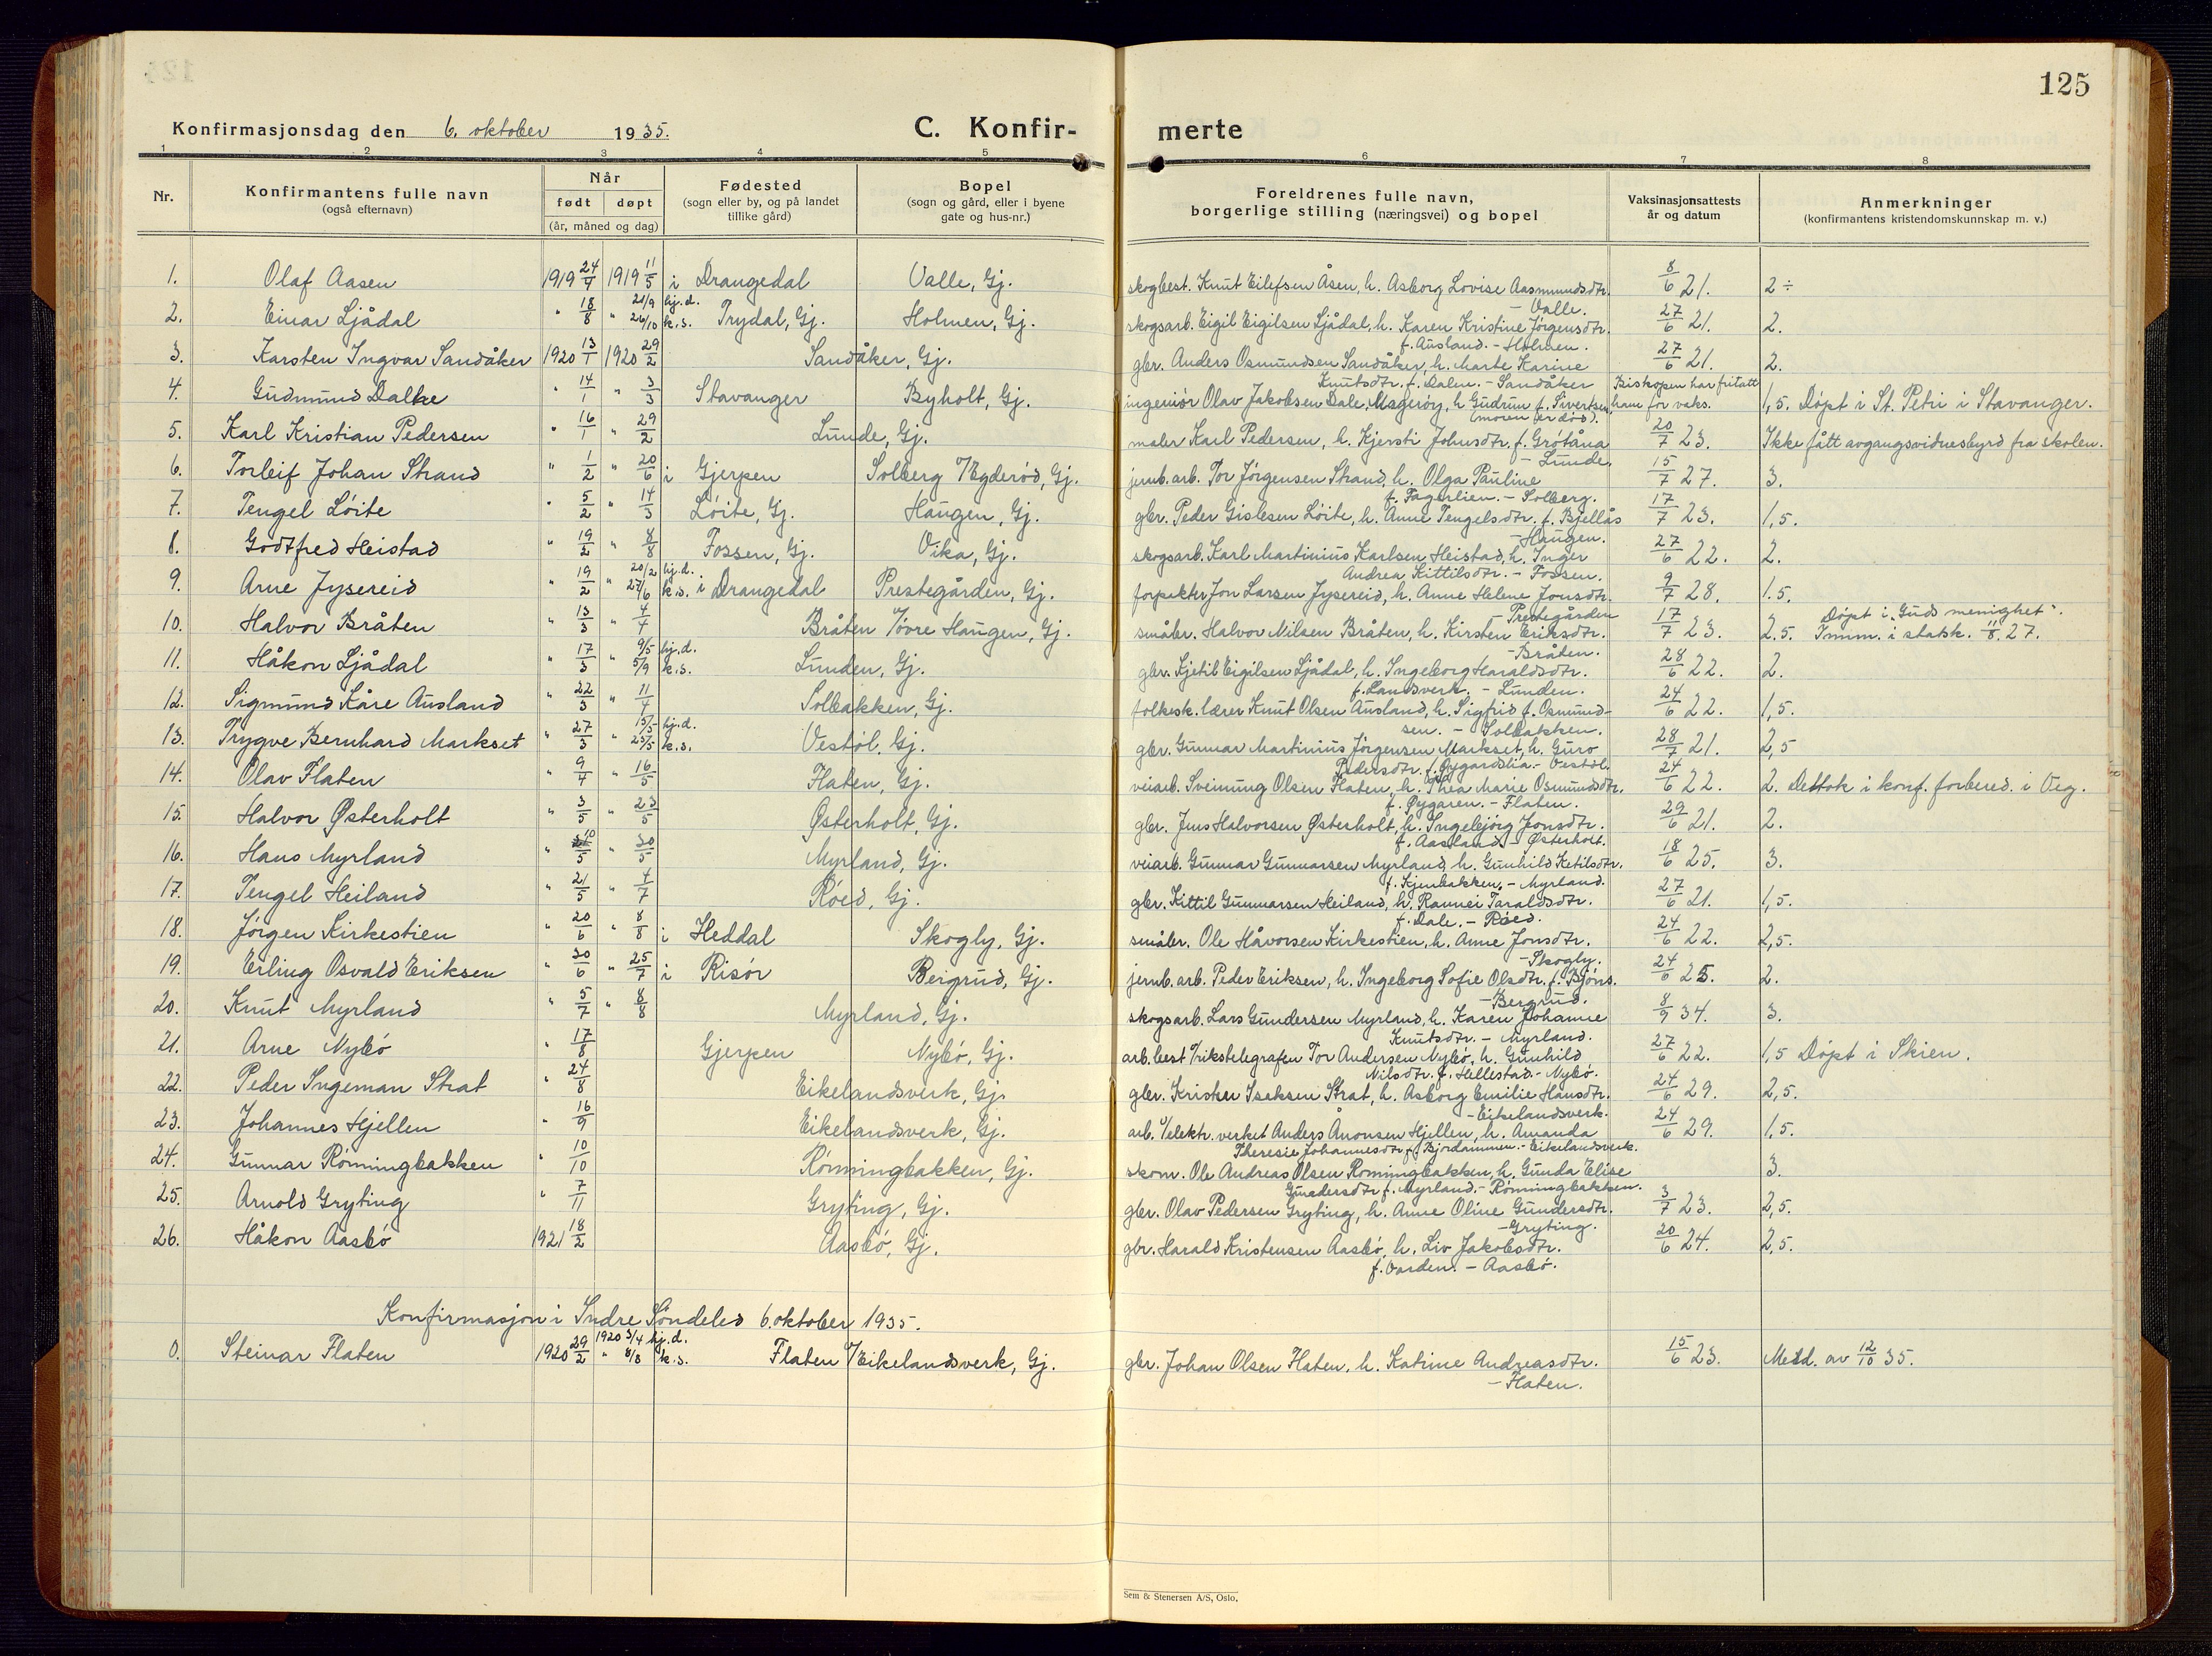 125
Konfirmasjonsdag den 6. oktober 1935.
C. Konfir-
merte
1 2 3 4 5 6 7 8
Nr.
Konfirmantens fulle navn
(også efternavn)
Når
født døpt
(år, måned og dag)
Fødested
(sogn eller by, og på landet
tillike gård)
Bopel
(sogn og gård, eller i byene
gate og hus-nr.)
Foreldrenes fulle navn,
borgerlige stilling (næringsvei) og bopel
Vaksinasjonsattests
år og datum
Anmerkninger
(konfirmantens kristendomskunnskap m. v.)
1. Olaf Aasen 1919 24/4 1919 11/5 i Drangedal Valle, Gj. skogbest. Knut Eilefsen Åsen, h. Asborg Lovise Aasmundsdtr. 8/6 21. 2 ÷
- Valle.
2. Einar Ljådal " 18/8 " 21/9 hj.d. 26/10 k.s. Trydal, Gj. Holmen, Gj. skogsarb. Eigil Eigilsen Ljådal, h. Karen Kristine Jørgensdtr. 27/6 21. 2.
f. Ausland. - Holmen.
3. Karsten Ingvar Sandåker 1920 13/1 1920 29/2 Sandåker, Gj. gbr. Anders Osmundsen Sandåker, h. Marte Karine 27/6 21. 2.
Knutsdtr. f. Dalen. - Sandåker
4. Gudmund Dalke " 14/1 " 3/3 Stavanger Byholt, Gj. ingeniør Olav Jakobsen Dale, Magerøy, h. Gudrun f. Sivertsen, Biskopen har fritatt ham for vaks. 1,5. Døpt i St. Petri i Stavanger.
(moren er død).
5. Karl Kristian Pedersen " 16/1 " 29/2 Lunde, Gj. maler Karl Pedersen, h. Kjersti Johnsdtr. f. Grótåna 20/7 23. Ikke fått avgangsvidnesbyrd fra skolen.
- Lunde.
6. Torleif Johan Strand " 1/2 " 20/6 i Gjerpen Solberg /Egderød, Gj. jernb.arb. Tor Jørgensen Strand, h. Olga Pauline 15/7 27. 3.
f. Fagerlien. - Solberg.
7. Tengel Löite " 5/2 " 14/3 Löite, Gj. Haugen, Gj. gbr. Peder Gislesen Löite, h. Anne Tengelsdtr. f. Bjellås 17/7 23. 1,5.
- Haugen.
8. Godtfred Heistad " 19/2 " 8/8 Fossen, Gj. Vika, Gj. skogsarb. Karl Martinius Karlsen Heistad, h. Inger 27/6 22. 2.
Andrea Kittilsdtr. - Fossen.
9. Arne Jysereid " 19/2 " 20/2 hj.d. 27/6 k.s. i Drangedal Prestegården, Gj. forpakter Jon Larsen Jysereid, h. Anne Helene Jonsdtr. 9/7 28. 1.5.
Prestegården
10. Halvor Bråten " 13/3 " 4/4 Bråten /övre Haugen, Gj. småbr. Halvor Nilsen Bråten, h. Kirsten Eriksdtr. 17/7 23. 2.5. Døpt i "Guds menighet".
- Bråten. Innm. i statsk. 11/8 27.
11. Håkon Ljådal " 17/3 " 9/5 hj.d. 5/9 k.s. Lunden, Gj. gbr. Kjetil Eigilsen Ljådal, h. Ingeborg Haraldsdtr. 28/6 22. 2.
f. Landsverk. - Lunden.
12. Sigmund Kåre Ausland " 22/3 " 11/4 Solbakken, Gj. folkesk. lærer Knut Olsen Ausland, h. Sigfrid f. Osmund- 24/6 22. 1,5.
sen. - Solbakken.
13. Trygve Bernhard Markset " 27/3 " 15/5 hj.d. 23/5 k.s. Vestöl, Gj. gbr. Gunnar Martinius Jörgensen Markset, h. Guro 28/7 21. 2,5
Pedersdtr. f. Øygardslia. - Vestöl.
14. Olav Flaten " 9/4 " 16/5 Flaten, Gj. veiarb. Sveinung Olsen Flaten, h. Thea Marie Osmundsdtr. 24/6 22. 2. Deltok i konf. forbered. i Veg.
f. Øygaren. - Flaten.
15. Halvor Østerholt " 3/5 " 23/5 Østerholt, Gj. gbr. Jens Halvorsen Østerholt, h. Ingebjörg Jonsdtr. 29/6 21. 2.
f. Aasland. - Østerholt.
16. Hans Myrland " 10/5 " 30/5 Myrland, Gj. veiarb. Gunnar Gunnarsen Myrland, h. Gunhild Ketilsdtr. 18/6 25. 3.
f. Kjenbakken. - Myrland.
17. Tengel Heiland " 21/5 " 4/7 Röed, Gj. gbr. Kittil Gunnarsen Heiland, h. Rannei Taraldsdtr. 27/6 21. 1,5.
f. Dale. - Röed.
18. Jörgen Kirkestien " 20/6 " 8/8 i Heddal Skogly, Gj. småbr. Ole Håvorsen Kirkestien, h. Anne Jonsdtr. 24/6 22. 2,5.
- Skogly.
19. Erling Osvald Eriksen " 30/6 " 25/7 i Risör Bergrud, Gj. jernb. arb. Peder Eriksen, h. Ingeborg Sofie Olsdtr. f. Bjöns. 24/6 25. 2.
- Bergrud.
20. Knut Myrland " 5/7 " 8/8 Myrland, Gj. skogsarb. Lars Gundersen Myrland, h. Karen Johanne 8/9 34. 3.
Knutsdtr. - Myrland.
21. Arne Nybö " 17/8 Gjerpen Nybö, Gj. arb.best v/rikstelegrafen Tor Andersen Nybö, h. Gunhild 27/6 22. 1,5 Döpt i Skien.
Nilsdtr. f. Hellestad. - Nybö.
22. Peder Ingeman Strat " 24/8 Eikelandsverk, Gj. gbr. Krister Isaksen Strat, h. Asborg Emilie Hansdtr. 24/6 29. 2,5.
- Eikelandsverk.
23. Johannes Hjellen " 16/9 Eikelandsverk, Gj. arb. v/elektr. verket Anders Ånonsen Hjellen, h. Amanda 24/6 29. 1,5.
Theresie Johannesdtr. f. Bjordammen. - Eikelandsverk.
24. Gunnar Rönningbakken " 10/10 Rönningbakken, Gj. skom. Ole Andreas Olsen Rönningbakken, h. Gunda Elise 3.
Gundersdtr f. Myrland. - Rönningbakken.
25. Arnold Gryting " 7/11 Gryting, Gj. gbr. Olav Pedersen Gryting, h. Anne Oline Gundersdtr. 3/7 23. 2,5.
- Gryting.
26. Håkon Aasbö 1921 18/2 Aasbö, Gj. gbr. Harald Kristensen Aasbö, h. Liv Jakobsdtr. 20/6 24. 2,5.
f. Varden. - Aasbö.
Konfirmasjon i Indre Söndeled 6. oktober 1935.
0. Steinar Flaten 1920 29/2 1920 3/4 hj.d. " 8/8 k.s. Flaten /Eikelandsverk, Gj. gbr. Johan Olsen Flaten, h. Katrine Andreasdtr. 15/6 23. Meld. av 12/10 35.
- Flaten.
Sem & Stenersen A/S, Oslo.